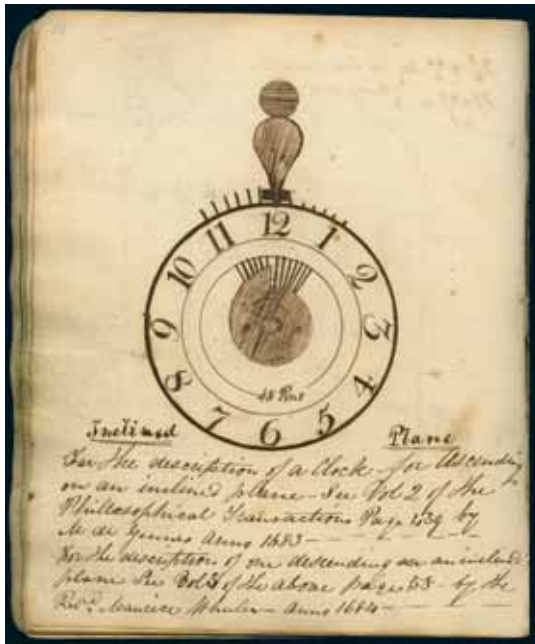 12
11
1
10
2
9
3
8
4
48 Pins
7
5
6
Inclined Plane
For the description of a Clock for Ascending
on an inclined plane - See Vol 2 of the
Philosophical Transactions Page 439 by
M de Gennes Anno 1683
For the description of one descending on an inclined
plane See Vol of the above page 58 - by the
Revd. Maurice Wheeler - Anno 1684